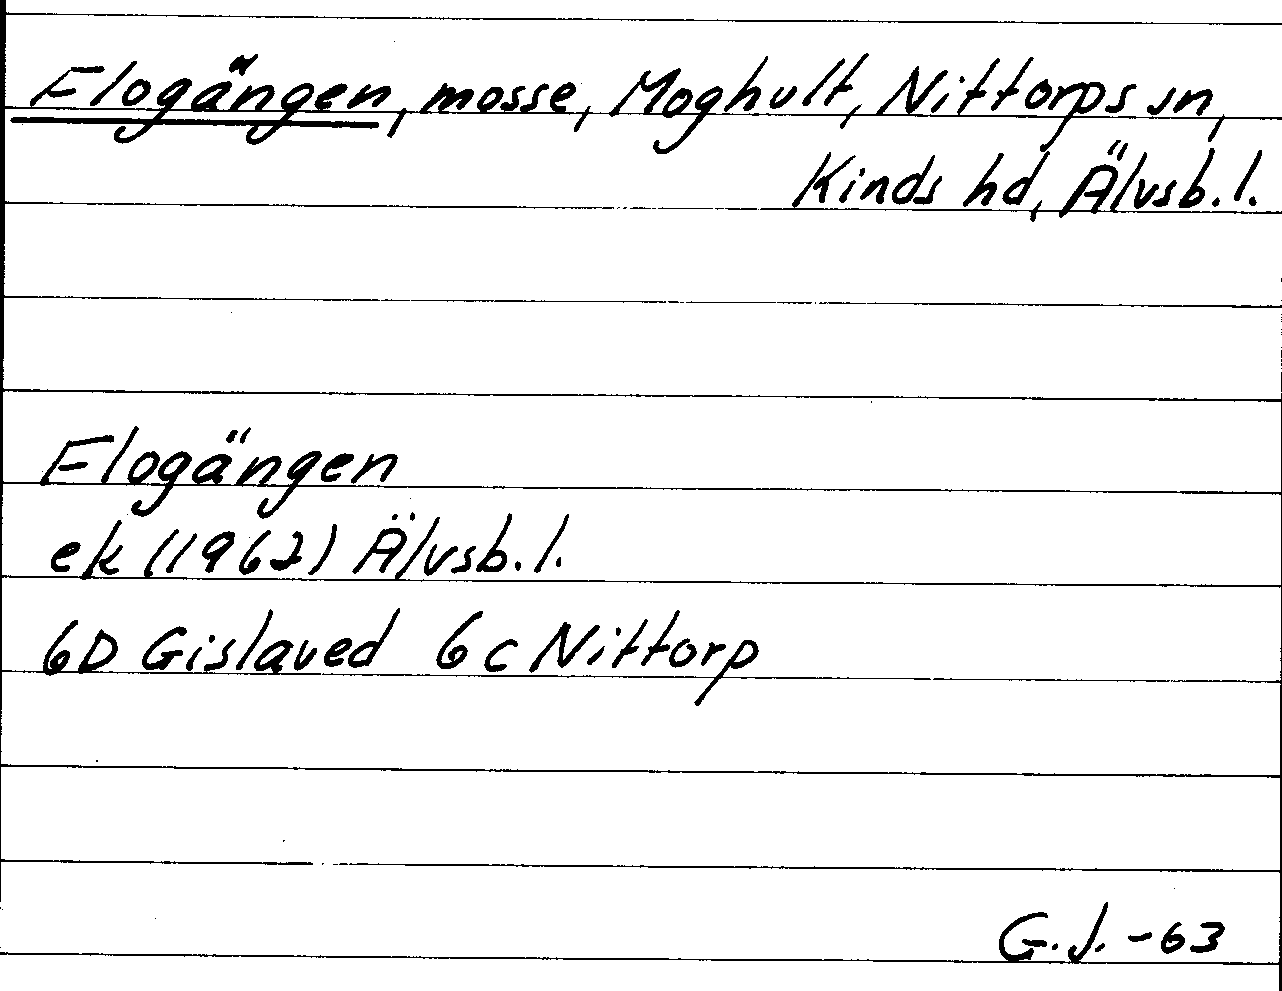 Flogängen, mosse, Moghult, Nittorps sn,
Kinds hd, Älvsb. l.
Flogängen
ek (1962) Älvsb. l.
6D Gislaved 6c Nittorp
G.J. -63